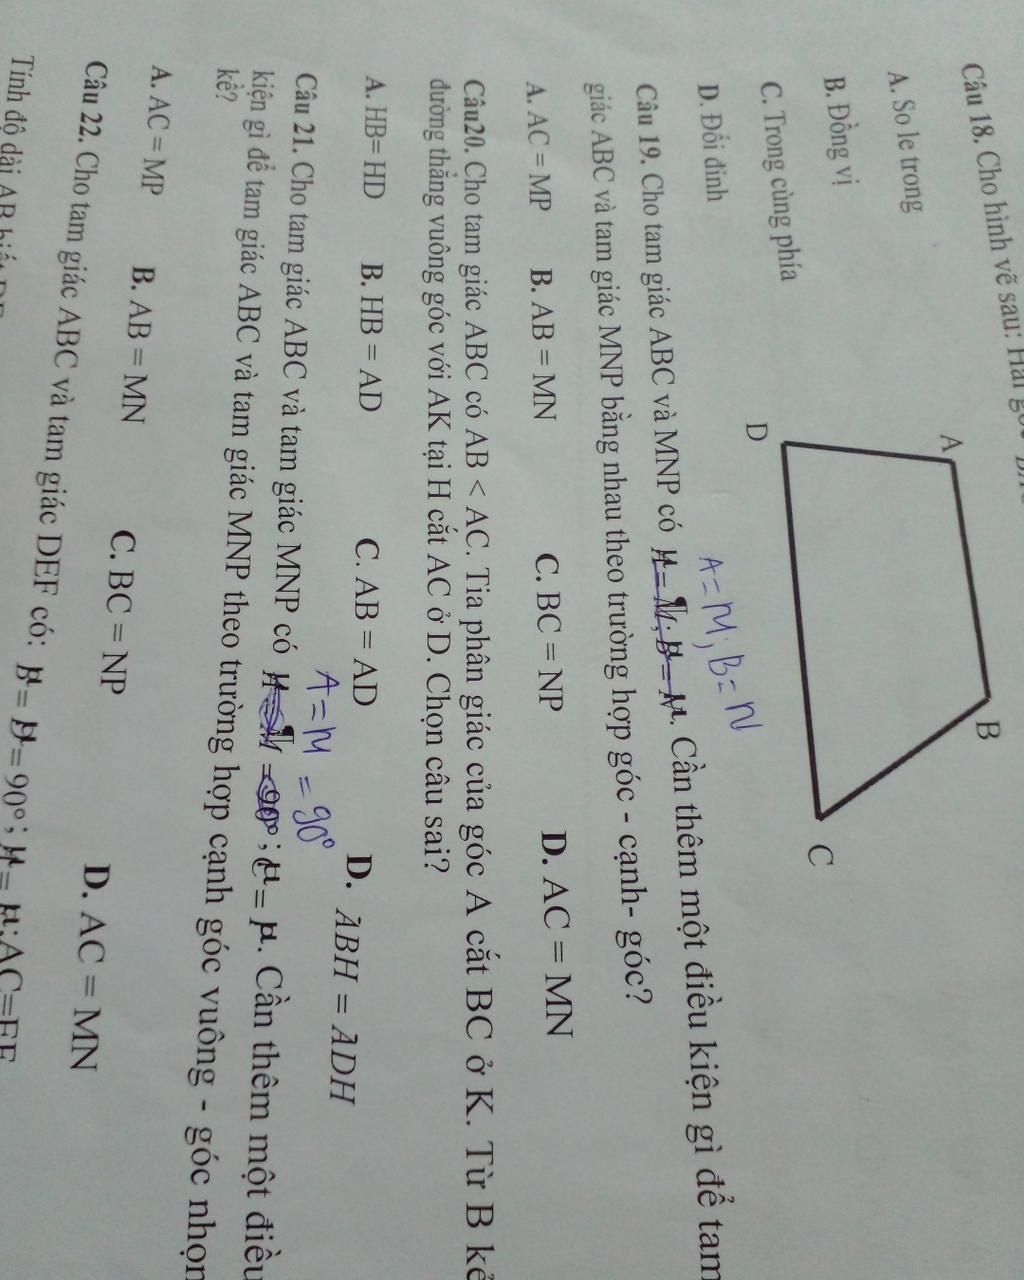 Câu 18. Cho hình vẽ sau: Hai
A. So le trong
B. Đồng vị
C. Trong cùng phía
D. Đối đỉnh
A
B
C
D
A = M; B = N
Câu 19. Cho tam giác ABC và MNP có . Cần thêm một điều kiện gì để tam
giác ABC và tam giác MNP bằng nhau theo trường hợp góc - cạnh- góc?
A. AC = MP B. AB = MN C. BC = NP D. AC = MN
Câu20. Cho tam giác ABC có AB < AC. Tia phân giác của góc A cắt BC ở K. Từ B kẻ
đường thẳng vuông góc với AK tại H cắt AC ở D. Chọn câu sai?
A. HB= HD B. HB = AD C. AB = AD D. ABH = ADH
A = M = 90°
Câu 21. Cho tam giác ABC và tam giác MNP có = 90°; C = . Cần thêm một điều
kiện gì để tam giác ABC và tam giác MNP theo trường hợp cạnh góc vuông - góc nhọn
kề?
A. AC = MP B. AB = MN C. BC = NP D. AC = MN
Câu 22. Cho tam giác ABC và tam giác DEF có: B = = 90°; = ;AC=FE
Tính độ dài AB biết